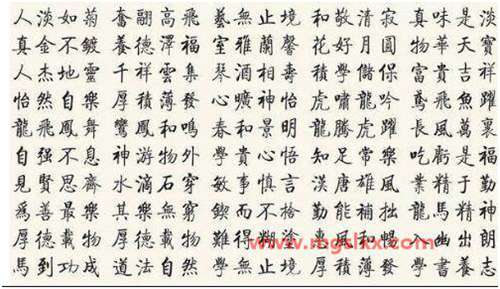 人淡如菊 奮翮高飛 藝無止境 和敬清寂 真味是淡
真金不鍍 養德澤福 室雅蘭馨 花好月圓 物華天寶
人杰地靈 千祥雲集 琴酒相壽 積學儲保 富貴吉祥
怡然自樂 厚積薄發 心曠神怡 虎嘯龍吟 鳶飛魚躍
龍飛鳳舞 鸞鳳和鳴 春和景明 龍騰虎躍 長風萬裏
自强不息 神游物外 學貴心悟 知足常樂 吃虧是福
見賢思齊 水滴石穿 敏事慎言 漢唐雄風 業精于勤
爲善最樂 其樂無窮 鍥而不捨 勤能補拙 龍馬精神
厚德載物 難得糊塗
馬到功成 道法自然 學無止境 厚積薄發